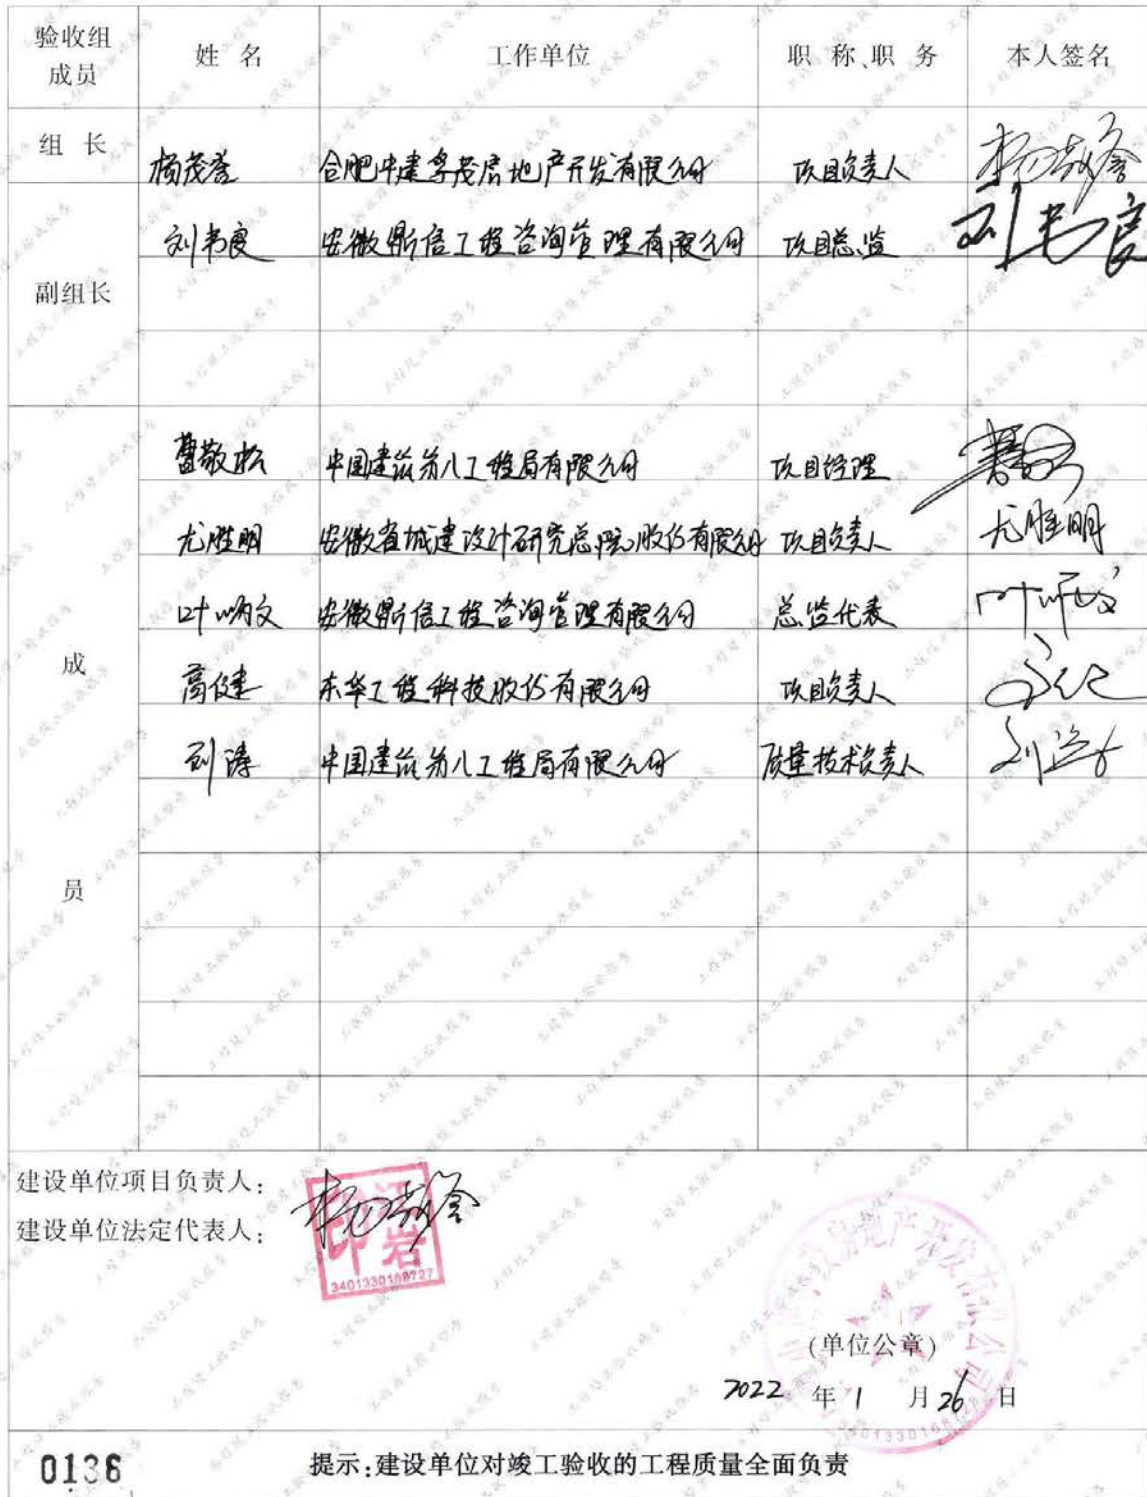 验收组成员 姓 名 工作单位 职 称、职 务 本人签名
组 长 杨茂誉 合肥中建孚茂房地产开发有限公司 项目负责人
刘韦良 安徽鼎信工程咨询管理有限公司 项目总监 刘韦良
副组长
曹敬松 中国建筑第八工程局有限公司 项目经理
尤胜明 安徽省城建设计研究总院股份有限公司 项目负责人 尤胜明
叶炳文 安徽鼎信工程咨询管理有限公司 总监代表
成 高健 东华工程科技股份有限公司 项目负责人
刘涛 中国建筑第八工程局有限公司 质量技术负责人 刘涛
员
建设单位项目负责人:
建设单位法定代表人:
印 岩
3401330168727
地产开发有限公司
(单位公章)
2022 年 1 月 26 日
0136 提示:建设单位对竣工验收的工程质量全面负责